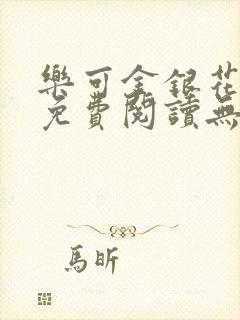 樂可金銀花
免費閱讀無
馬昕